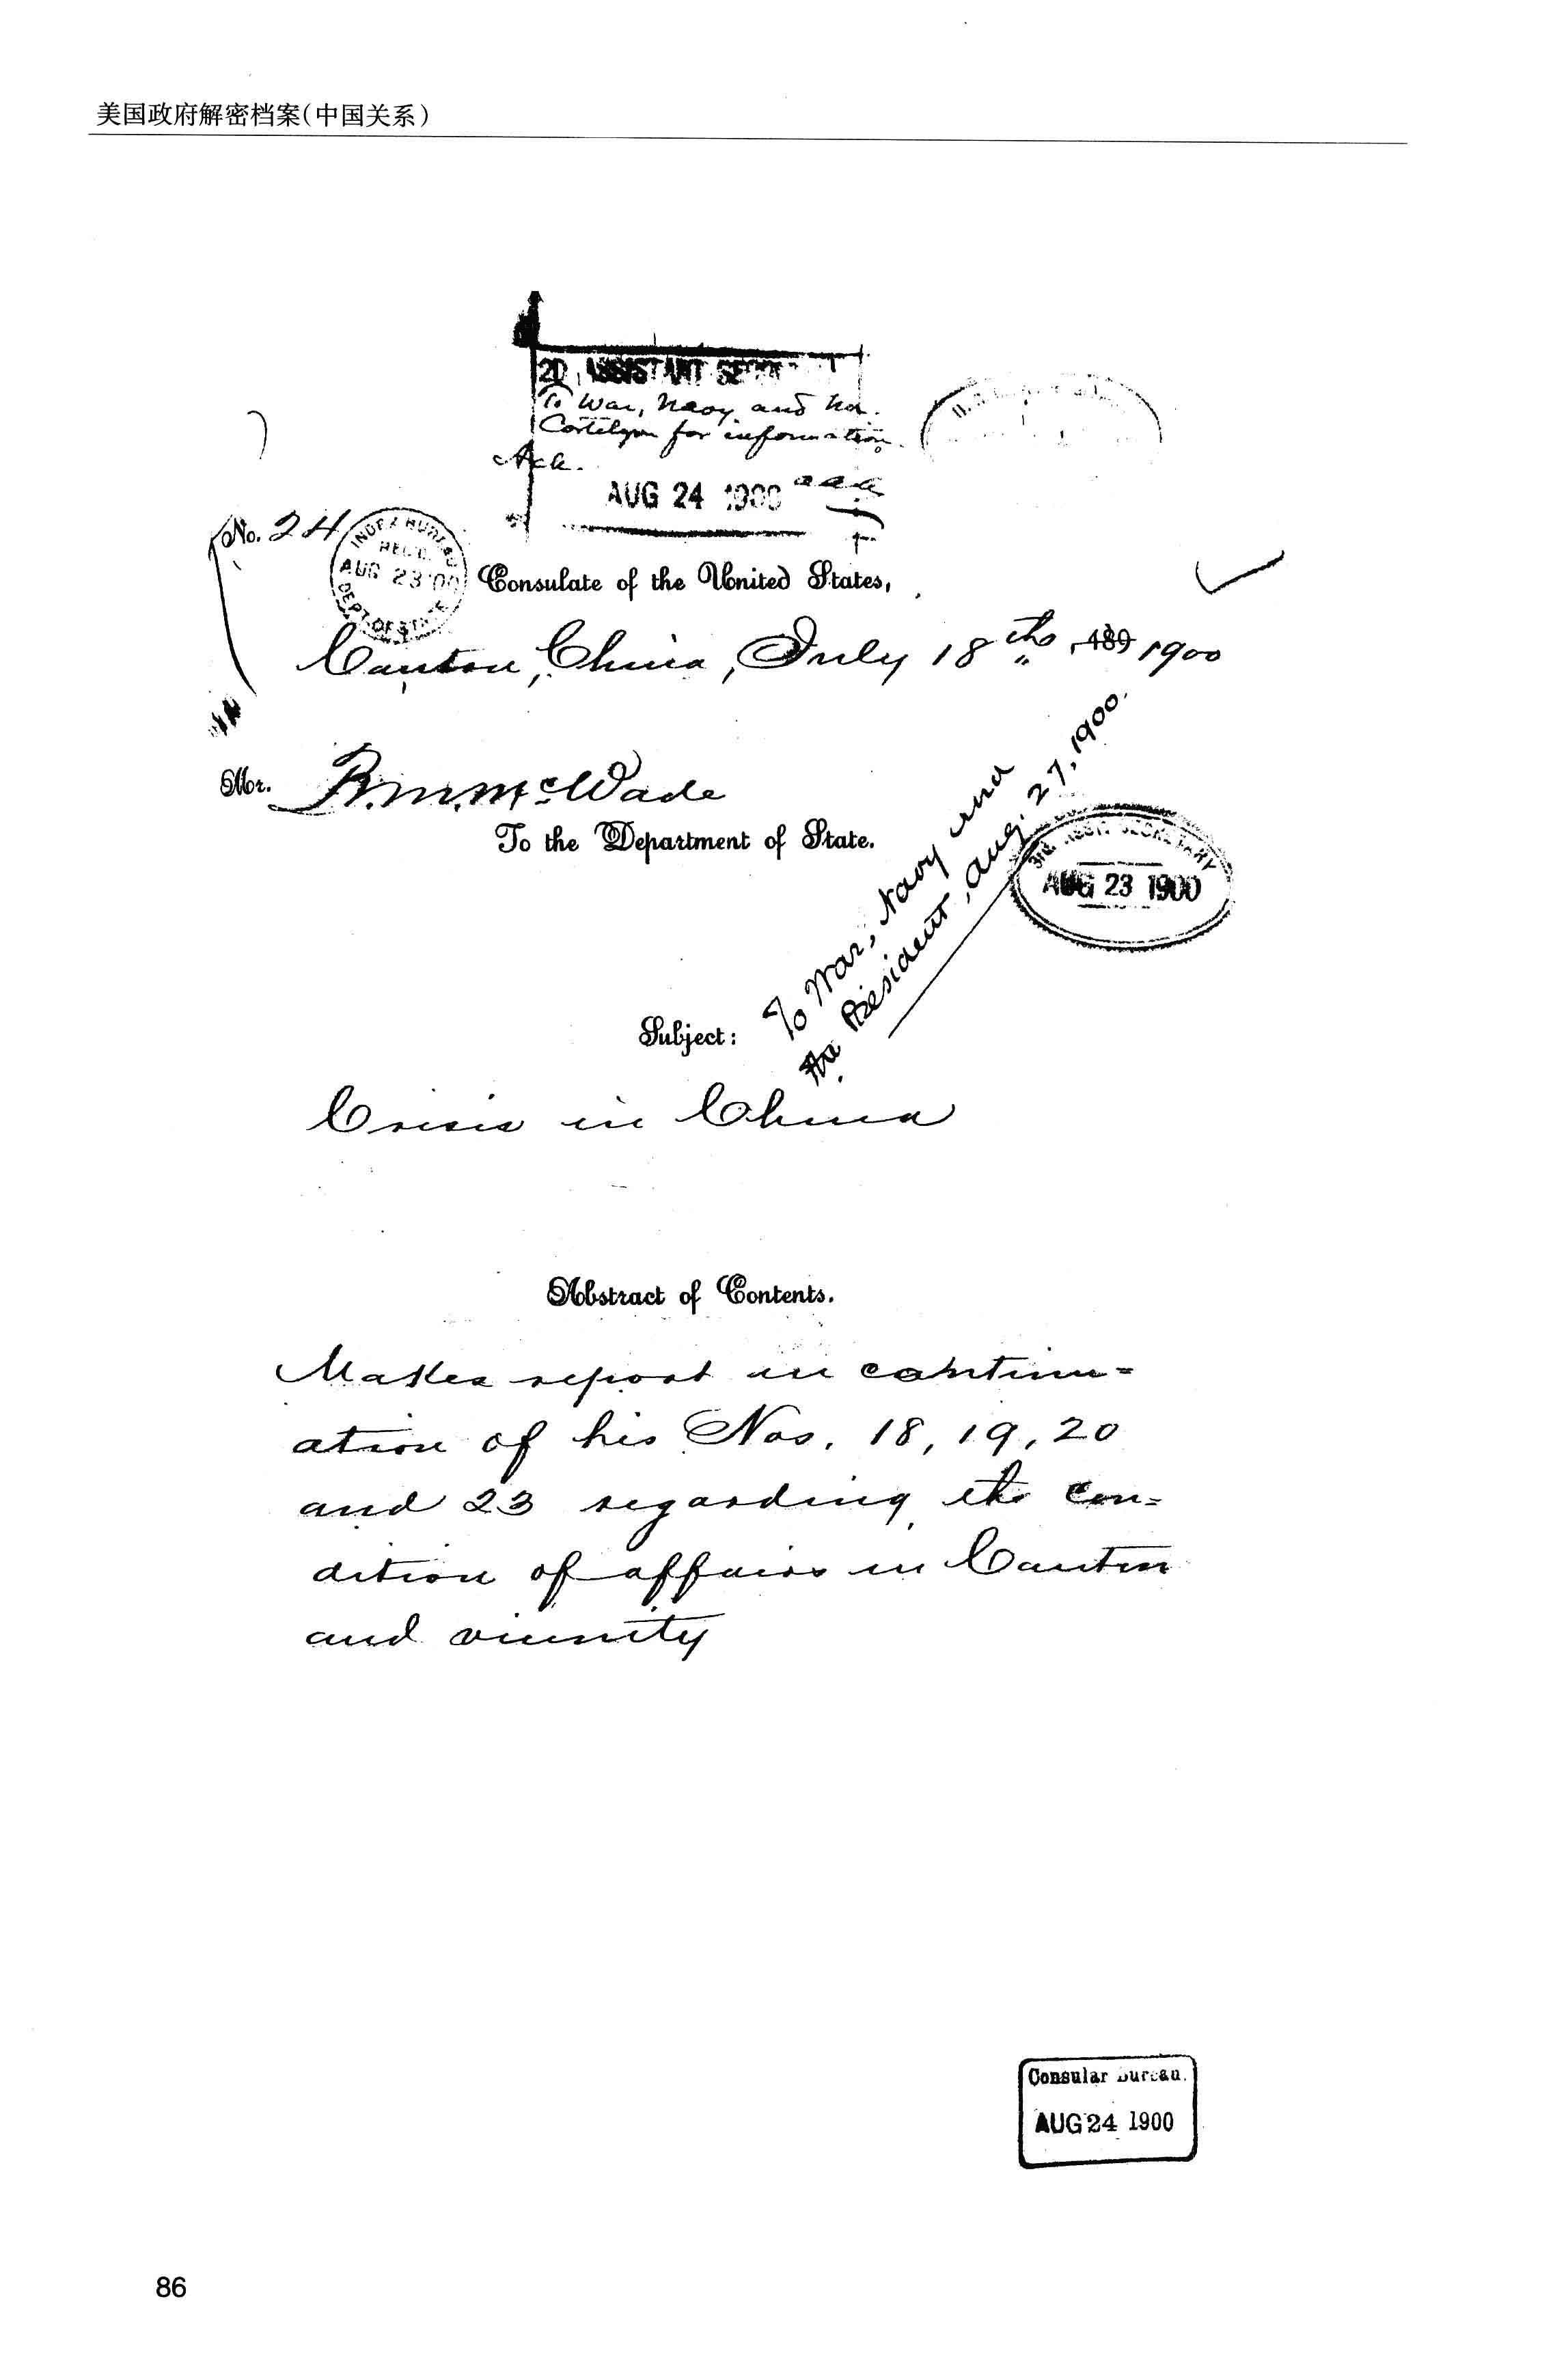 美国政府解密档案(中国关系)
2D ASSISTANT
To War, Navy and
Cortelyou for information.
Ack.
AUG 24 1900
No. 24
INDEX BUREAU
REC'D.
AUG 23 '00
DEPT. OF STATE
Consulate of the United States,
Canton, China, July 18th, 189 1900
Mr. R.M. McWade
To the Department of State.
3rd ASST. SECRETARY
AUG 23 1900
To War, Navy and
the President, Aug. 27, 1900.
Subject:
Crisis in China
Abstract of Contents.
Makes report in continu=
ation of his Nos. 18, 19, 20
and 23 regarding the con=
dition of affairs in Canton
and vicinity
Consular Bureau.
AUG 24 1900
86